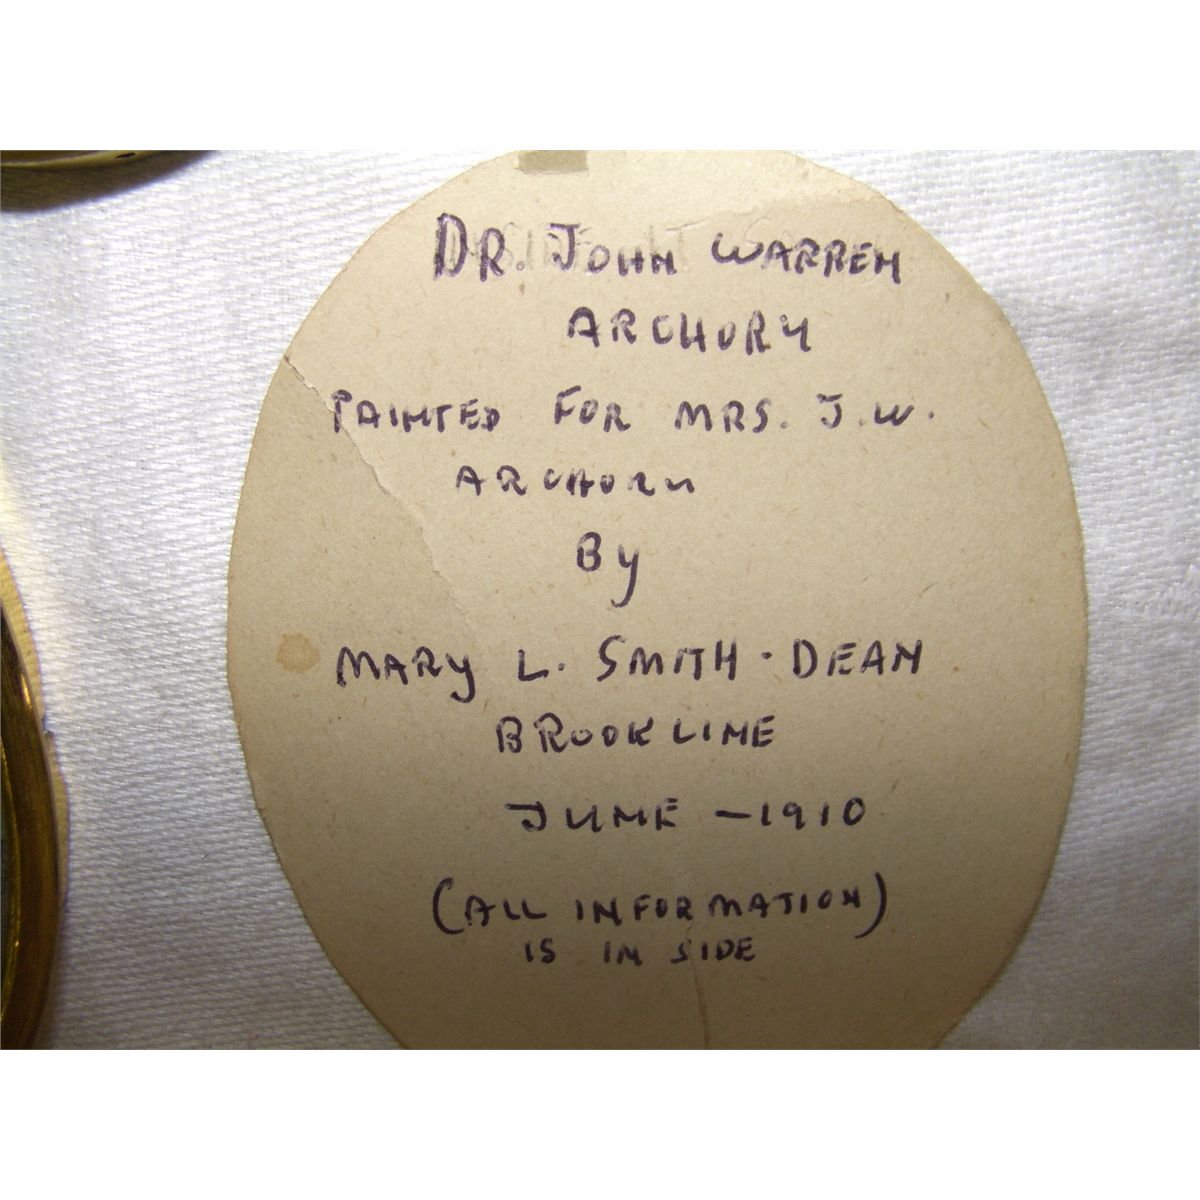 DR. JOHN WARREN
ARCHORY
PAINTED FOR MRS. J.W.
ARCHORY
By
MARY L. SMITH-DEAN
BROOKLINE
JUNE - 1910
(ALL INFORMATION)
IS IN SIDE